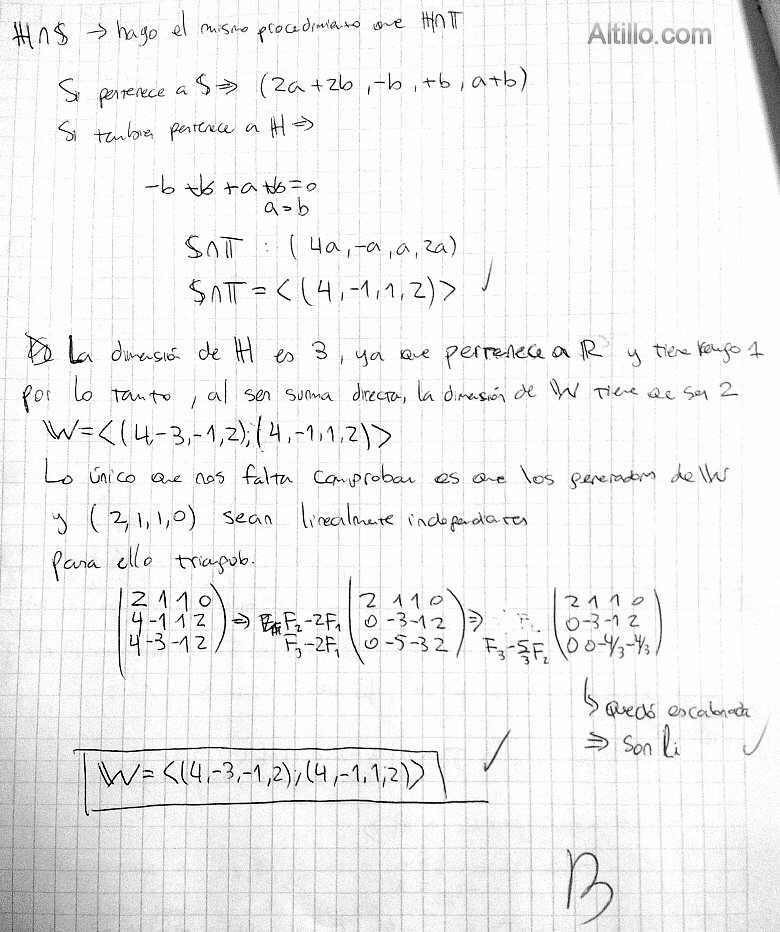 ℍ∩𝕊 → hago el mismo procedimiento que ℍ∩𝕋
Altillo.com
Si pertenece a 𝕊 ⇒ (2a+2b, -b, +b, a+b)
Si también pertenece a ℍ ⇒
-b + b + a + b = 0
a = b
𝕊∩𝕋 : (4a, -a, a, 2a)
𝕊∩𝕋 = <(4, -1, 1, 2)> ✓
La dimensión de ℍ es 3, ya que pertenece a ℝ y tiene rango 1
por lo tanto, al ser suma directa, la dimensión de 𝕎 tiene que ser 2
𝕎 = <(4, -3, -1, 2); (4, -1, 1, 2)>
Lo único que nos falta comprobar es que los generadores de 𝕎
y (2, 1, 1, 0) sean linealmente independientes
para ello triangulo.
(2 1 1 0 ; 4 -1 1 2 ; 4 -3 -1 2) ⇒ F₂-2F₁ F₃-2F₁ (2 1 1 0 ; 0 -3 -1 2 ; 0 -5 -3 2) ⇒ F₃-5/3F₂ (2 1 1 0 ; 0 -3 -1 2 ; 0 0 -4/3 -4/3)
↳ quedó escalonada
⇒ Son li ✓
𝕎 = <(4, -3, -1, 2); (4, -1, 1, 2)> ✓
B